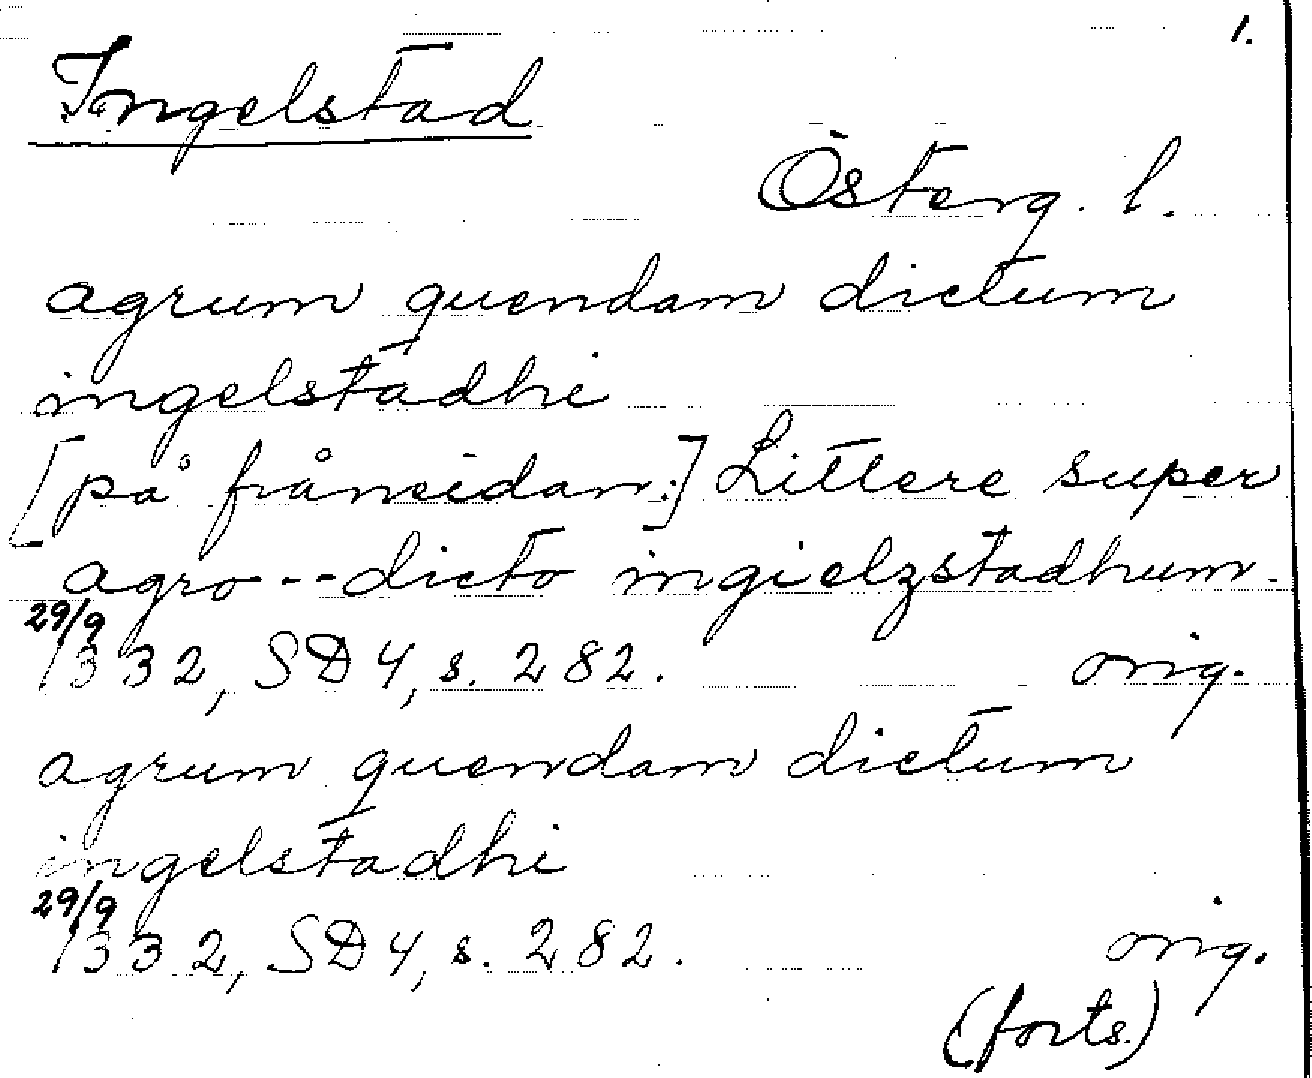 1.
Ingelstad
Österg. l.
agrum quendam dictum
ingelstadhi
[på frånsidan:] Littere super
agro -- dicto ingielzstadhum.
29/9
1332, SD4, s. 282. orig.
agrum quendam dictum
ingelstadhi
29/9
1332, SD4, s. 282. orig.
(forts.)